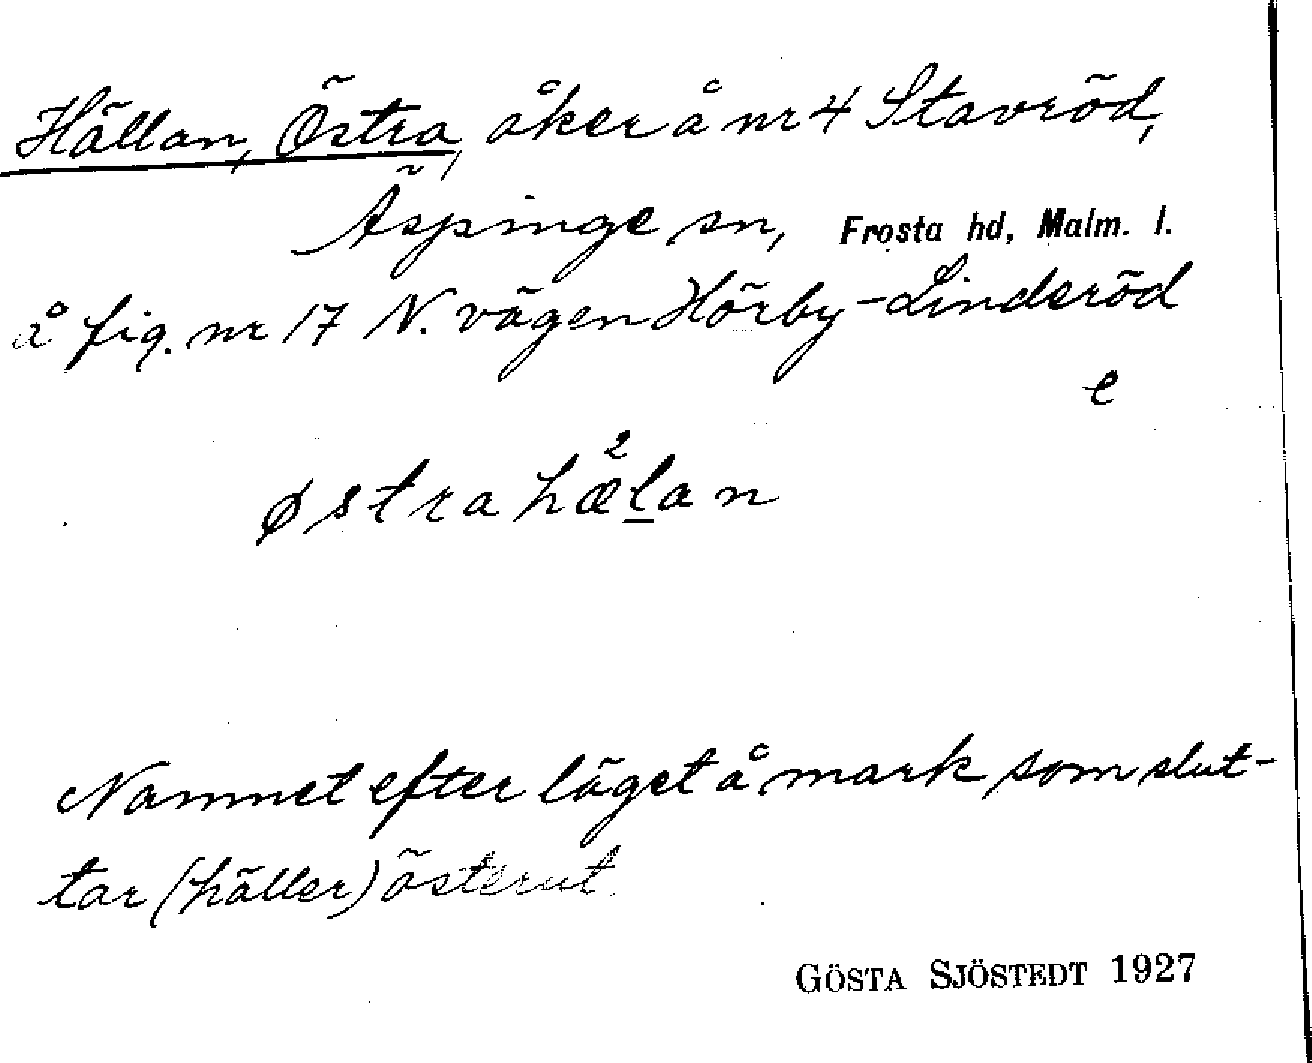 Hällan, Östra, åker å nr 4 Stavröd,
Äspinge sn, Frosta hd, Malm. l.
å fig. nr 17 N. vägen Hörby-Linderöd
e
2
østra hælan
Namnet efter läget å mark som slut-
tar (häller) österut.
GÖSTA SJÖSTEDT 1927